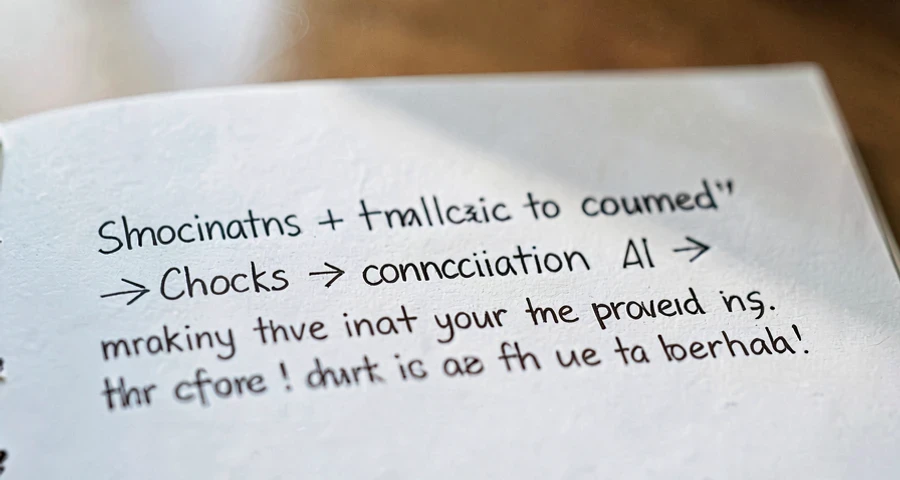 Slmocinatns + tnallczic to coumed"
→ Chocks → conncciiation AI →
mrakiny thve inat your tne proveıd inş.
thr cfore ! durt ic az fh ue ta berhab!